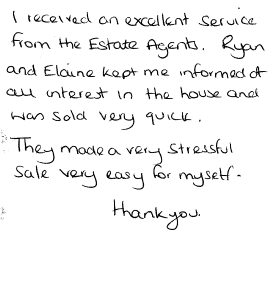 I received an excellent service
from the Estate Agents. Ryan
and Elaine kept me informed of
all interest in the house and
was sold very quick.
They made a very stressful
sale very easy for myself.
Thankyou.